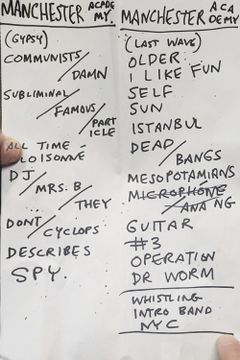 MANCHESTER ACADEMY.
(GYPSY)
COMMUNISTS/
DAMN
SUBLIMINAL/
FAMOUS/
PART
ICLE
ALL TIME
CLOISONNÉ
DJ/
MRS. B/
THEY
DONT/
CYCLOPS
DESCRIBES
SPY.
MANCHESTER ACADEMY
(LAST WAVE)
OLDER
I LIKE FUN
SELF
SUN
ISTANBUL
DEAD/
BANGS
MESOPOTAMIANS
MICROPHONE/
ANA NG
GUITAR
#3
OPERATION
DR WORM
WHISTLING
INTRO BAND
NYC